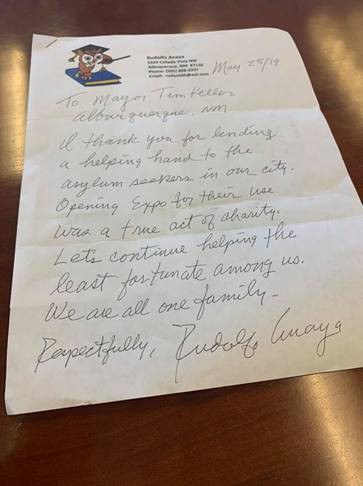 Rudolfo Anaya
Vista NW
Albuquerque, NM 87120
Phone: (505)
Email:
May 25/19
To Mayor Tim Keller
Alburquerque, NM
I thank you for lending
a helping hand to the
asylum seekers in our city.
Opening Expo for their use
was a true act of charity.
Lets continue helping the
least fortunate among us.
We are all one family -
Respectfully, Rudolfo Anaya